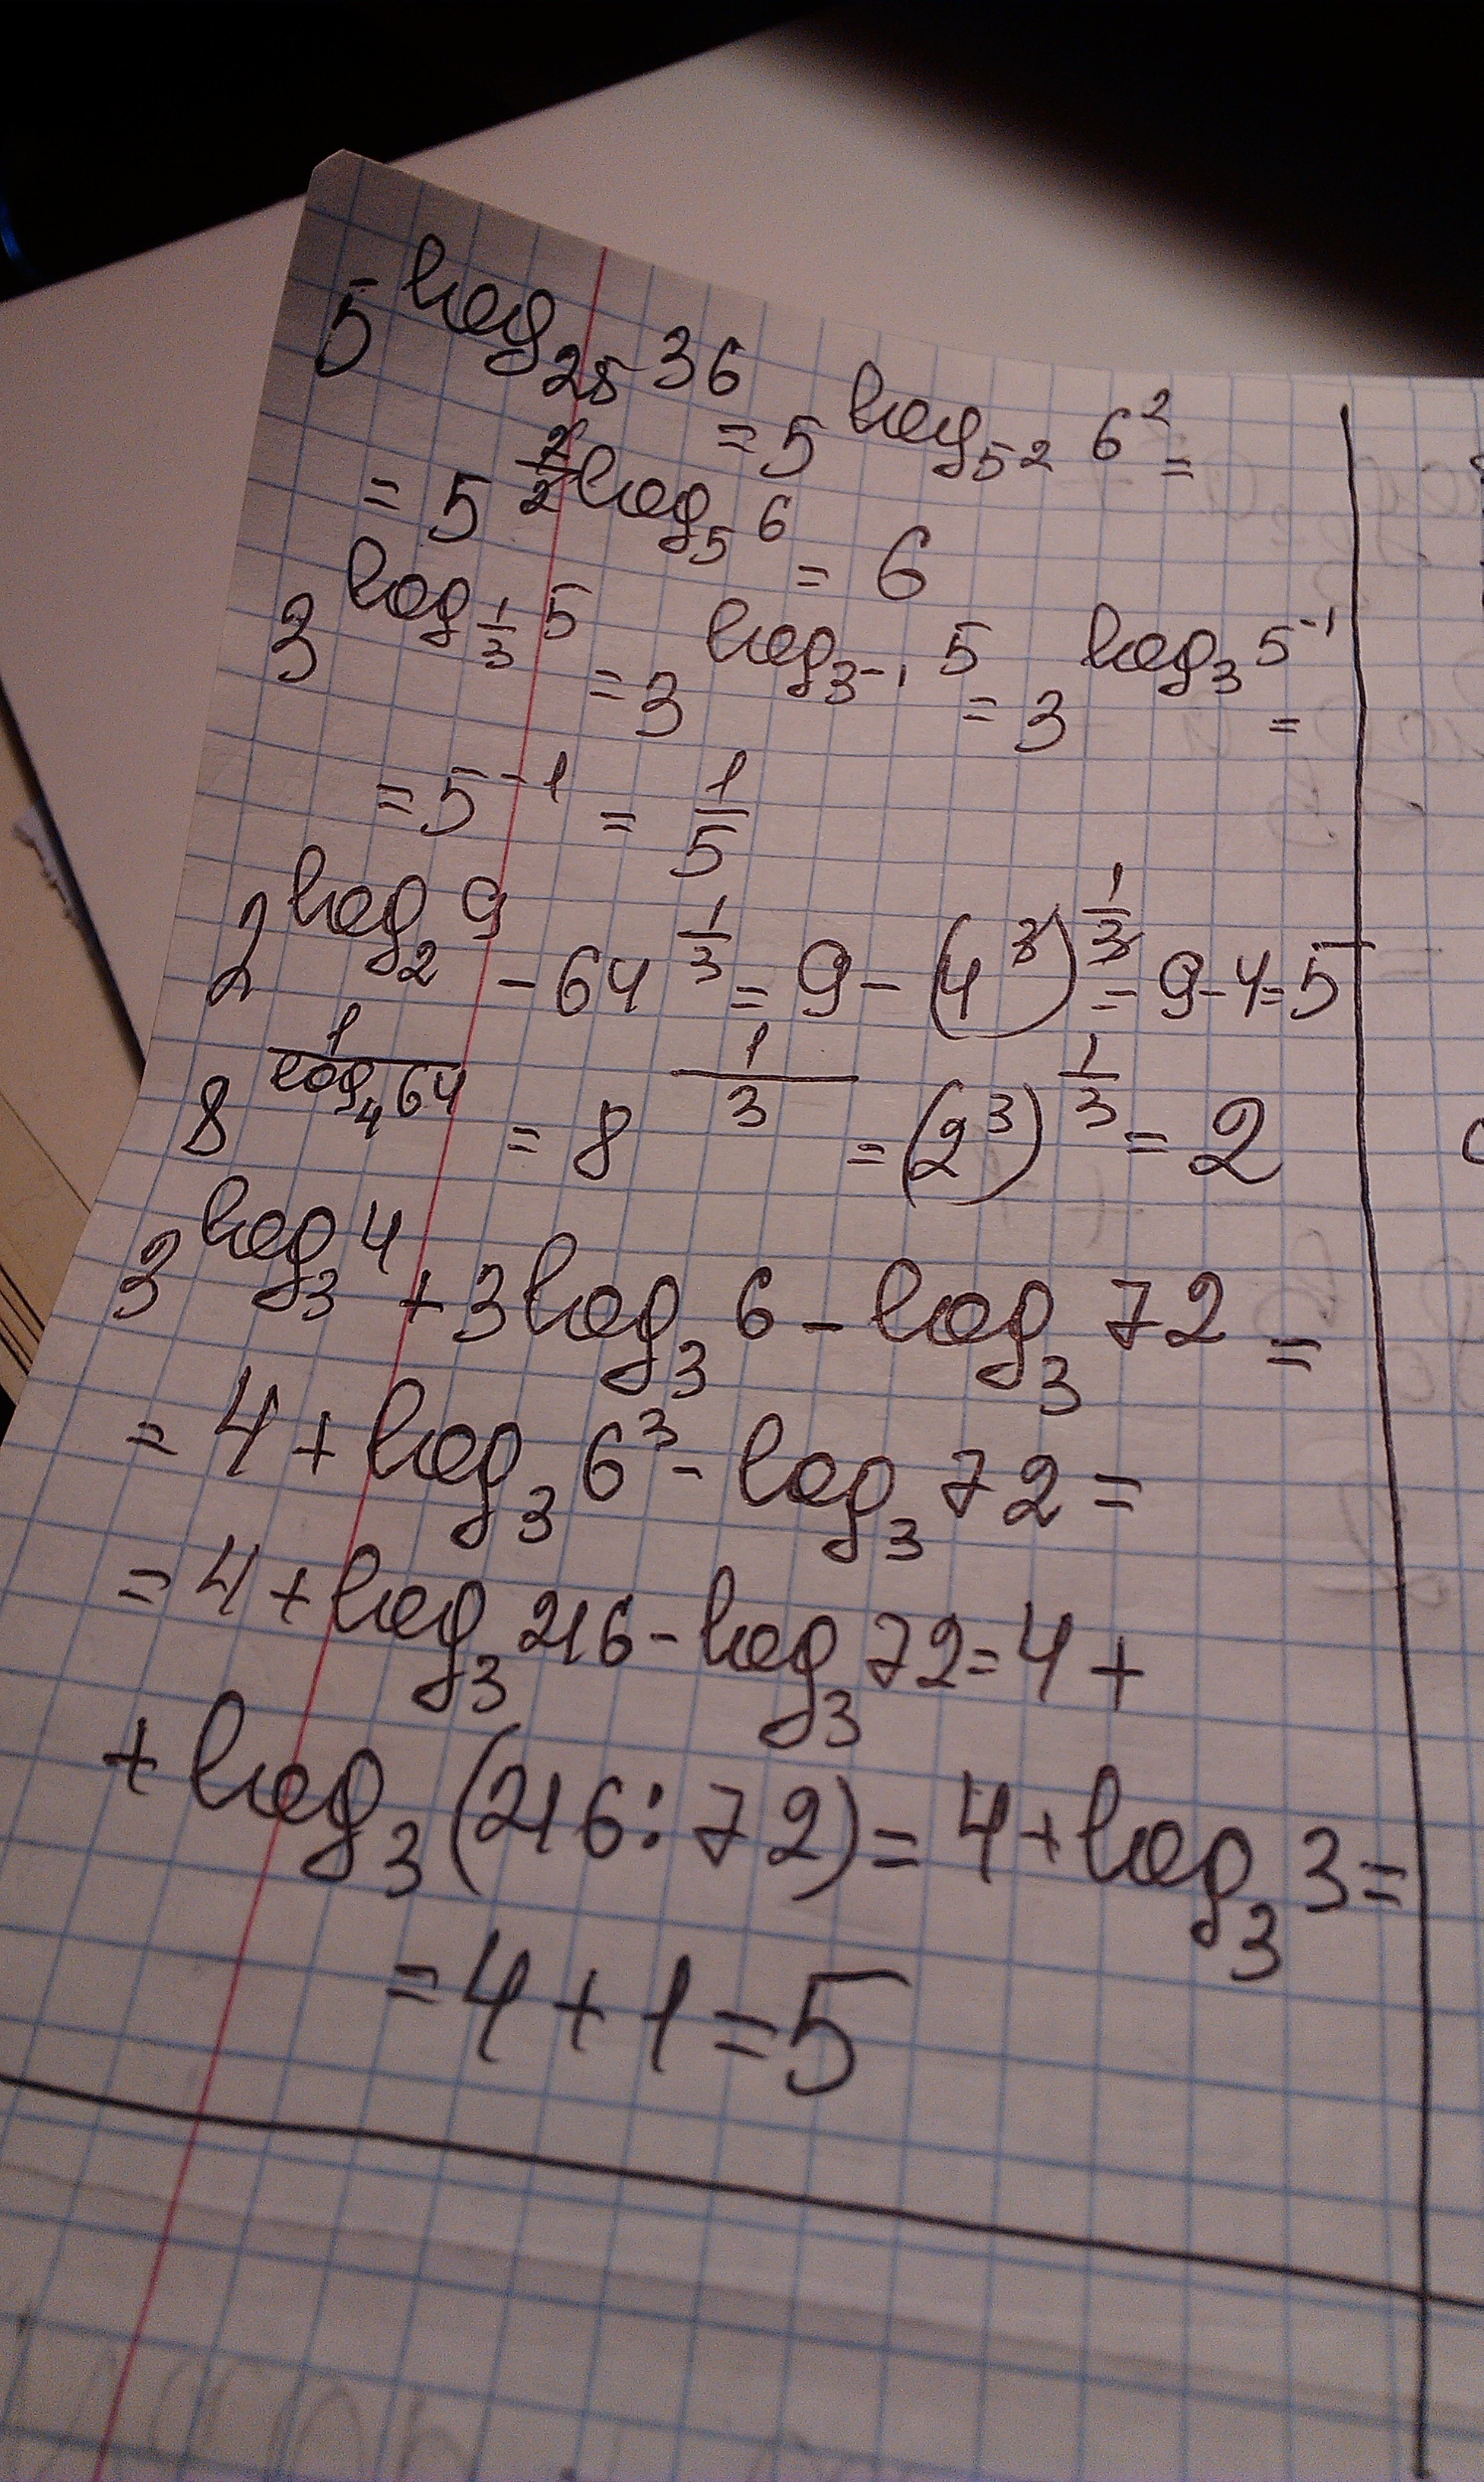 5^{log_{25} 36} = 5^{log_{5^2} 6^2} =
= 5^{\frac{2}{2} log_5 6} = 6
3^{log_{\frac{1}{3}} 5} = 3^{log_{3^{-1}} 5} = 3^{log_3 5^{-1}} =
= 5^{-1} = \frac{1}{5}
2^{log_2 9} - 64^{\frac{1}{3}} = 9 - (4^3)^{\frac{1}{3}} = 9 - 4 = 5
8^{\frac{1}{log_4 64}} = 8^{\frac{1}{3}} = (2^3)^{\frac{1}{3}} = 2
3^{log_3 4} + 3 log_3 6 - log_3 72 =
= 4 + log_3 6^3 - log_3 72 =
= 4 + log_3 216 - log_3 72 = 4 +
+ log_3 (216 : 72) = 4 + log_3 3 =
= 4 + 1 = 5